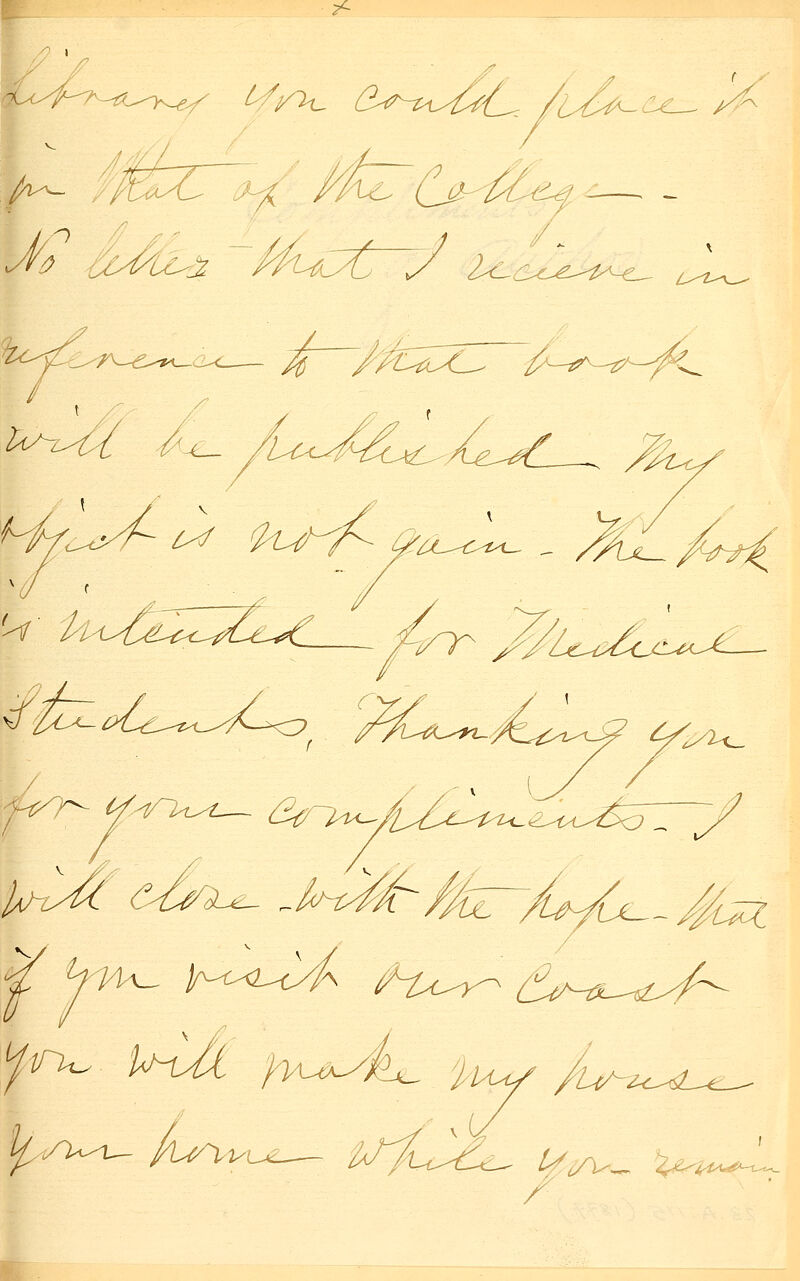 Library you could place it
in that of the College -
No letter that I recieve in
reference to that book
will be published - My
object is not gain - The book
is intended for Medical
Students, Thanking you
for your compliments - I
will close - with the hope - that
if you visit our Coast
you will make my house
your home while you remain